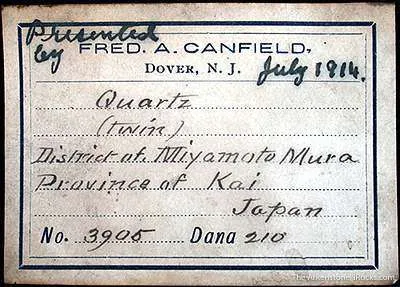 Presented
by FRED. A. CANFIELD,
DOVER, N. J. July 1914.
Quartz
(twin)
District of Miyamoto Mura
Province of Kai
Japan
No. 3905 Dana 210